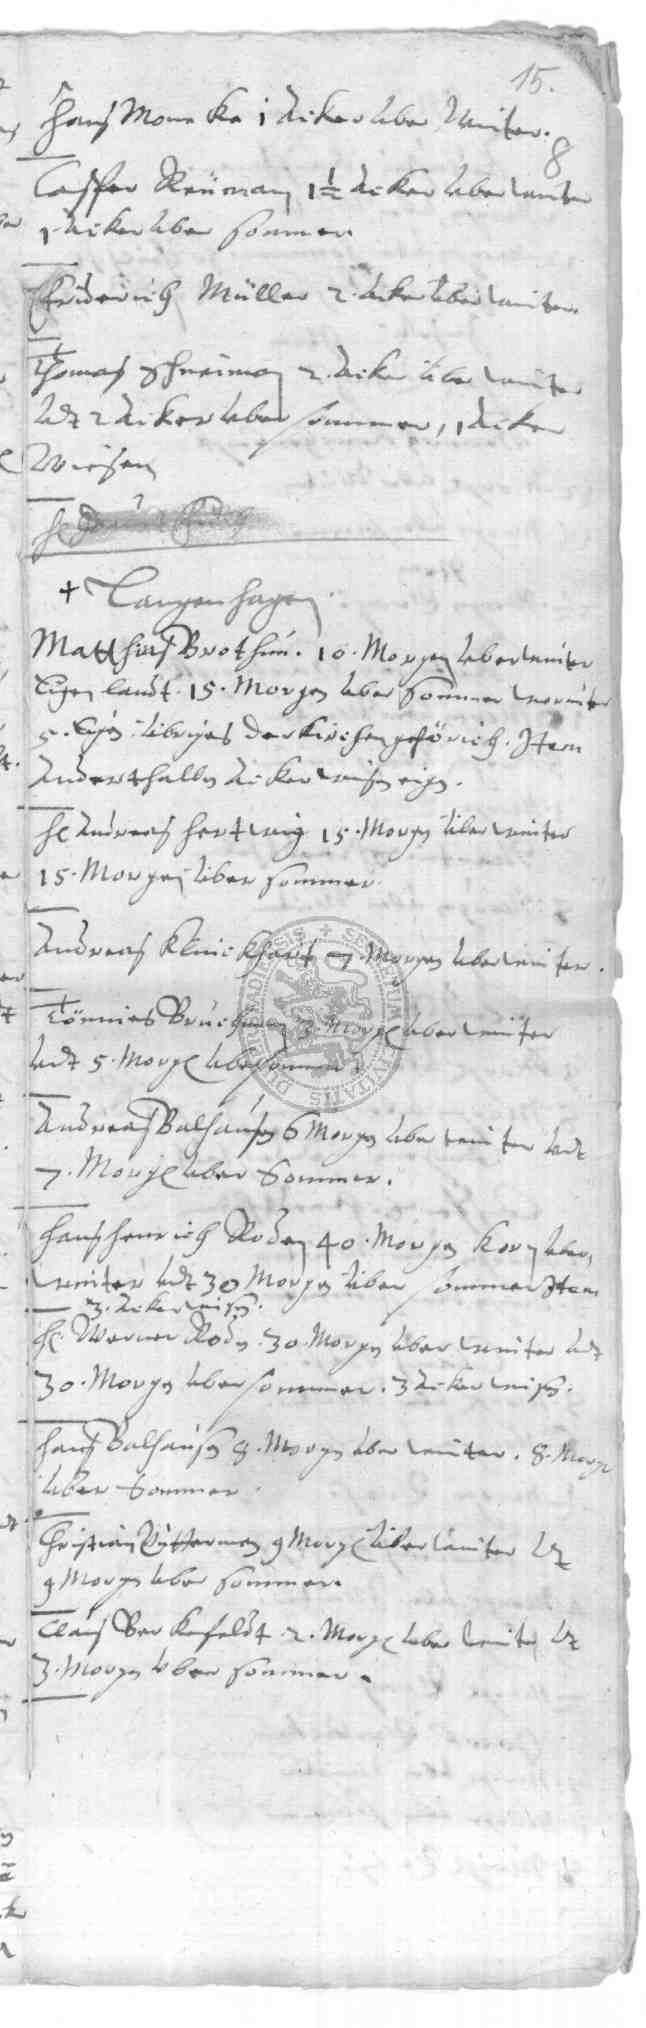 15.
8
Hans Moneke 1 Acker uber Winter.
Casper Reuman 1½ Acker uber winter
1 Acker uber sommer.
Friderich Müller 2. Acker uber winter.
Thomas Schneiman 2. Acker uber winter
undt 2 Acker uber sommer, 1 Acker
Wiesen
H
+ Langenhagen
Matthias Brothun. 10. Morgen uber winter
Eigen landt. 15. Morgen uber sommer worunter
5. Eigen ubriges der Kirchen gehörich. Item
Anderthalben Acker wisen eigen.
H Andreas Hertwig 15. Morgen uber winter
15. Morgen uber sommer
Andreas Klinckhart 7. Morgen uber winter.
SIGILLUM CIVITATIS DUDERSTADIENSIS
Tönnies Bruchman 3. Morgen uber winter
undt 5. Morgen uber sommer
Andreas Balhausen 6 Morgen uber winter undt
7. Morgen uber Sommer.
Hans Henrich Roden 40. Morgen Korn uber
winter undt 30 Morgen uber sommer Item
3. Acker wisen.
H. Werner Roden. 30. Morgen uber winter undt
30. Morgen uber sommer. 3 Acker wisen.
Hans Balhausen 8. Morgen uber winter. 8. Morgen
uber Sommer.
Christian 9 Morgen uber winter undt
9 Morgen uber sommer.
Claus Berkefeldt 2. Morgen uber winter undt
3. Morgen uber sommer.